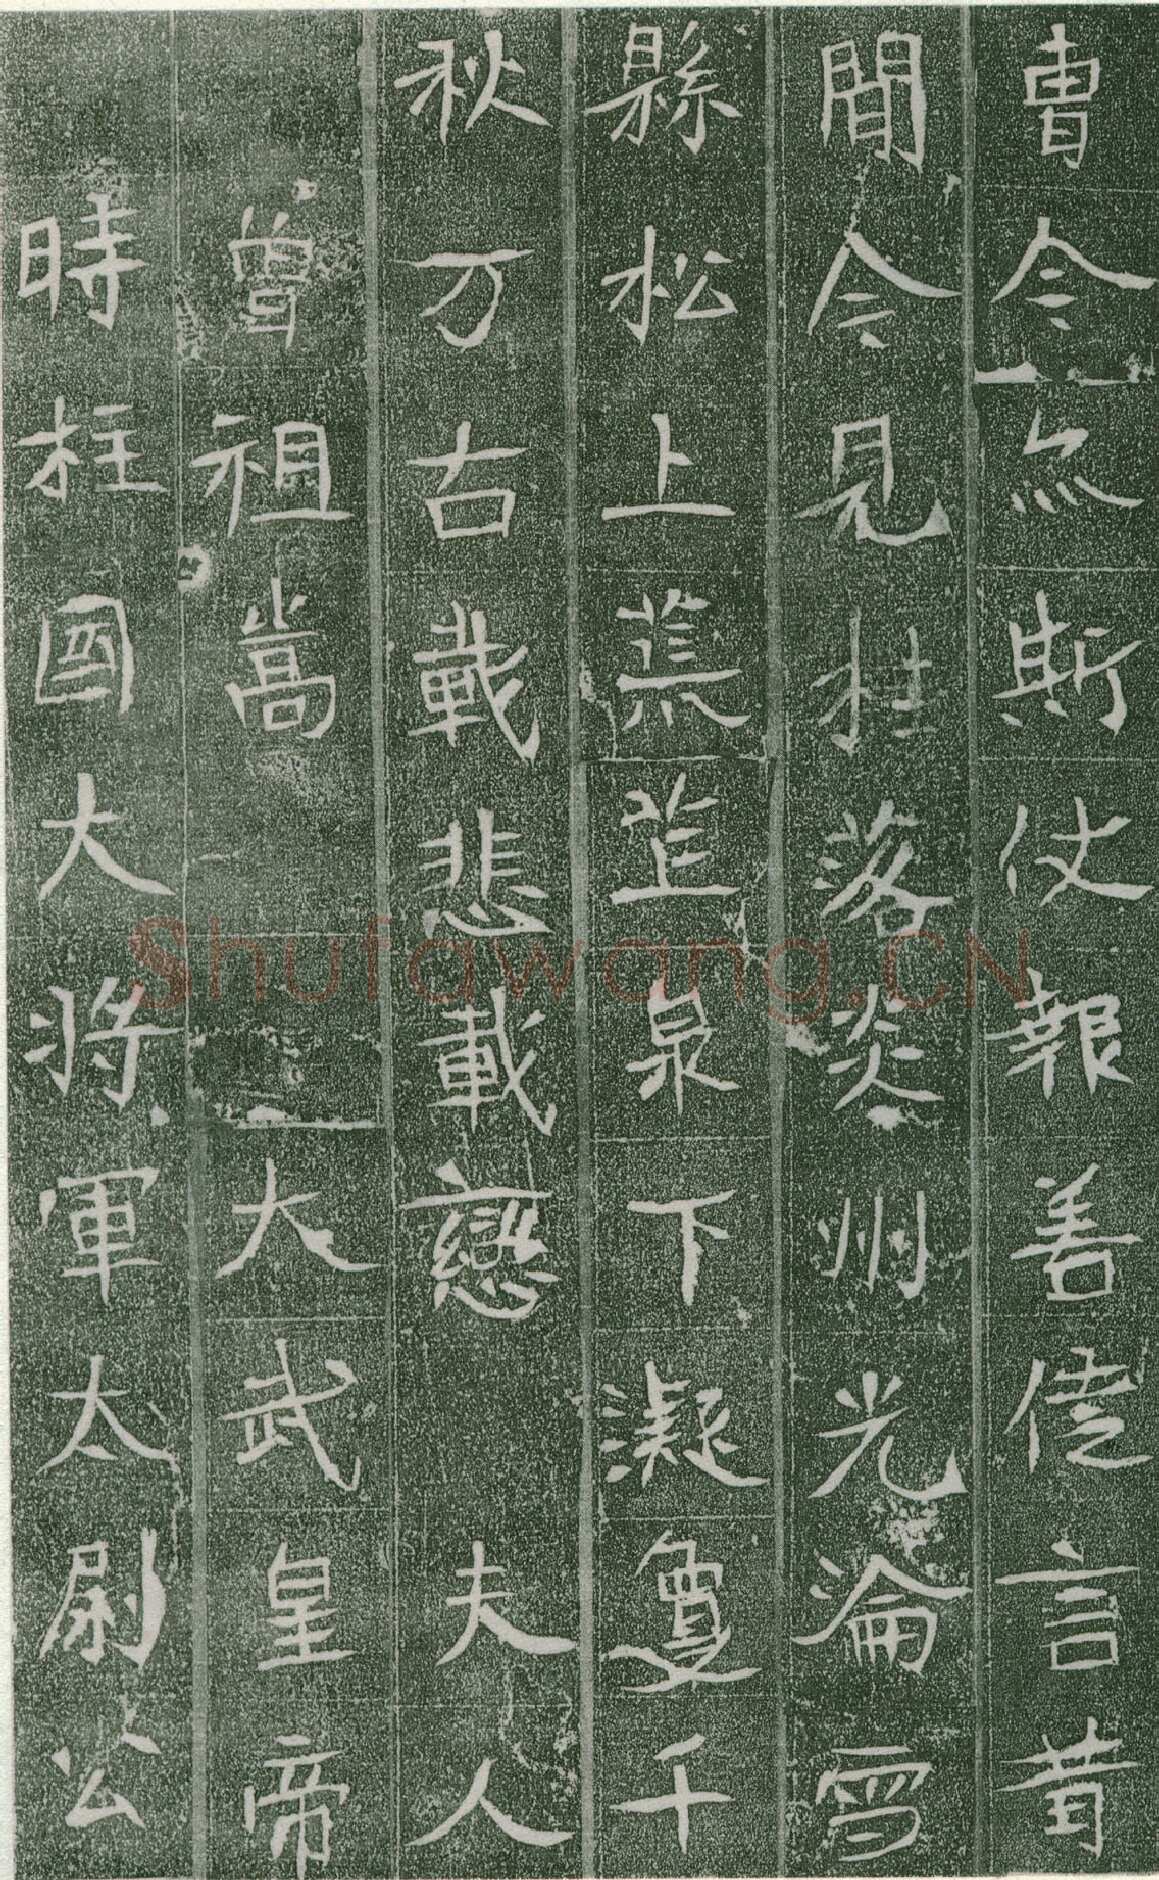 曹今斯仗報善言昔
聞今見桂落炎州光淪雪
縣松上荒泉下凝夐千
秋万古載悲載戀 夫人
曾祖嵩 大武皇帝
時柱國大將軍太尉公
Shufawang.CN